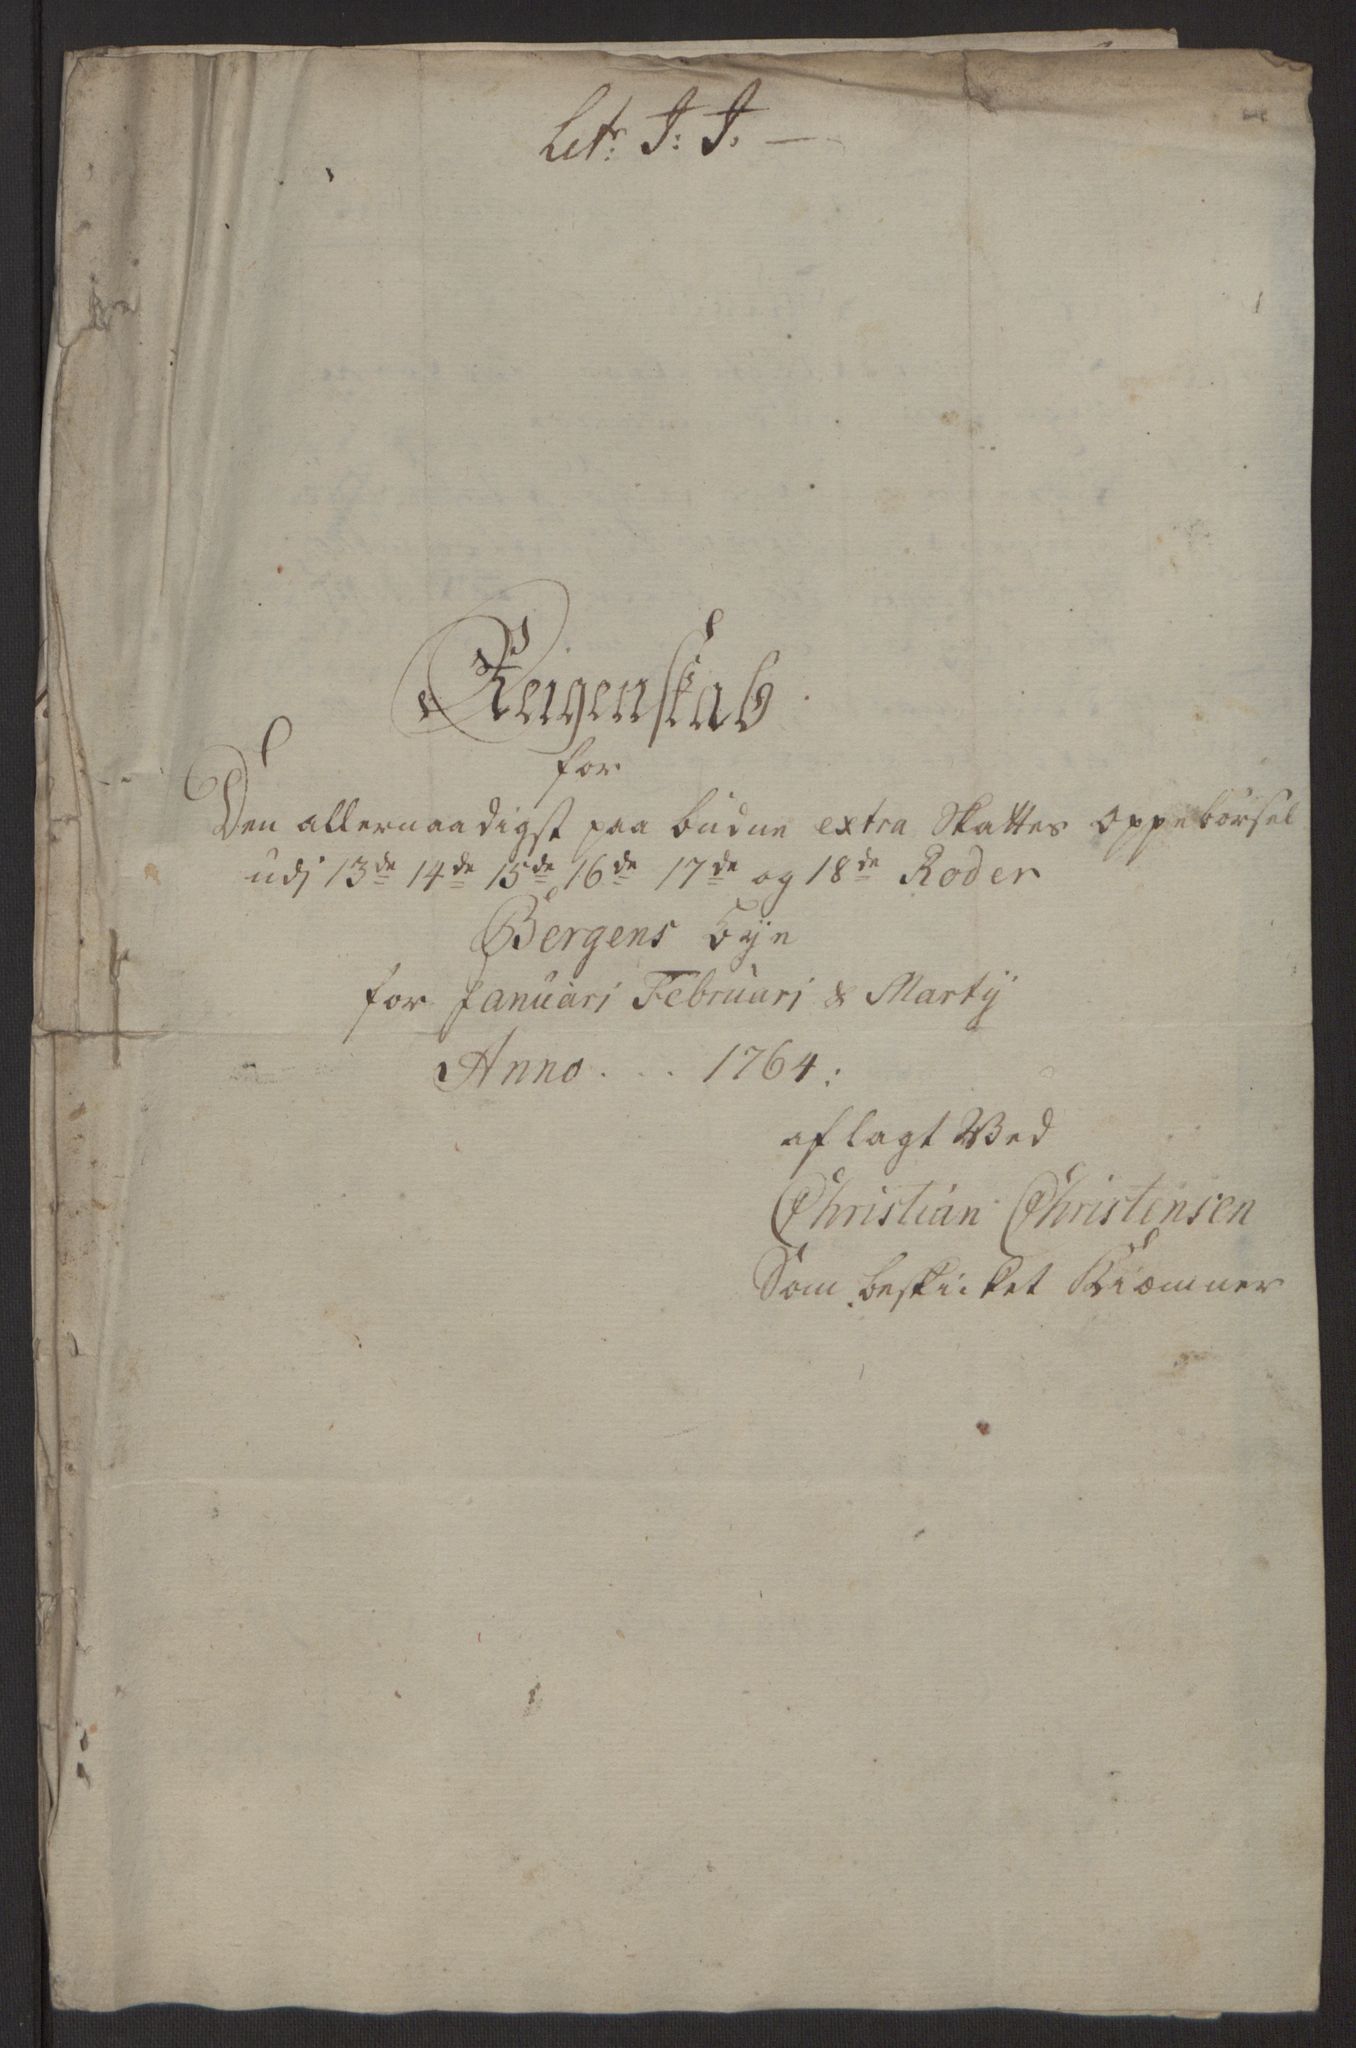 Litr: J: J. —
Reigenskab
for
Den allernaadigst paa budne extra Skattes Oppebörsel
udj 13de 14de 15de 16de 17de og 18de Roder
Bergens bye
for Januari Februarj & Martij
Anno . . . 1764:
aflagt Ved
Christian Christensen
Som beskicket Kiæmner